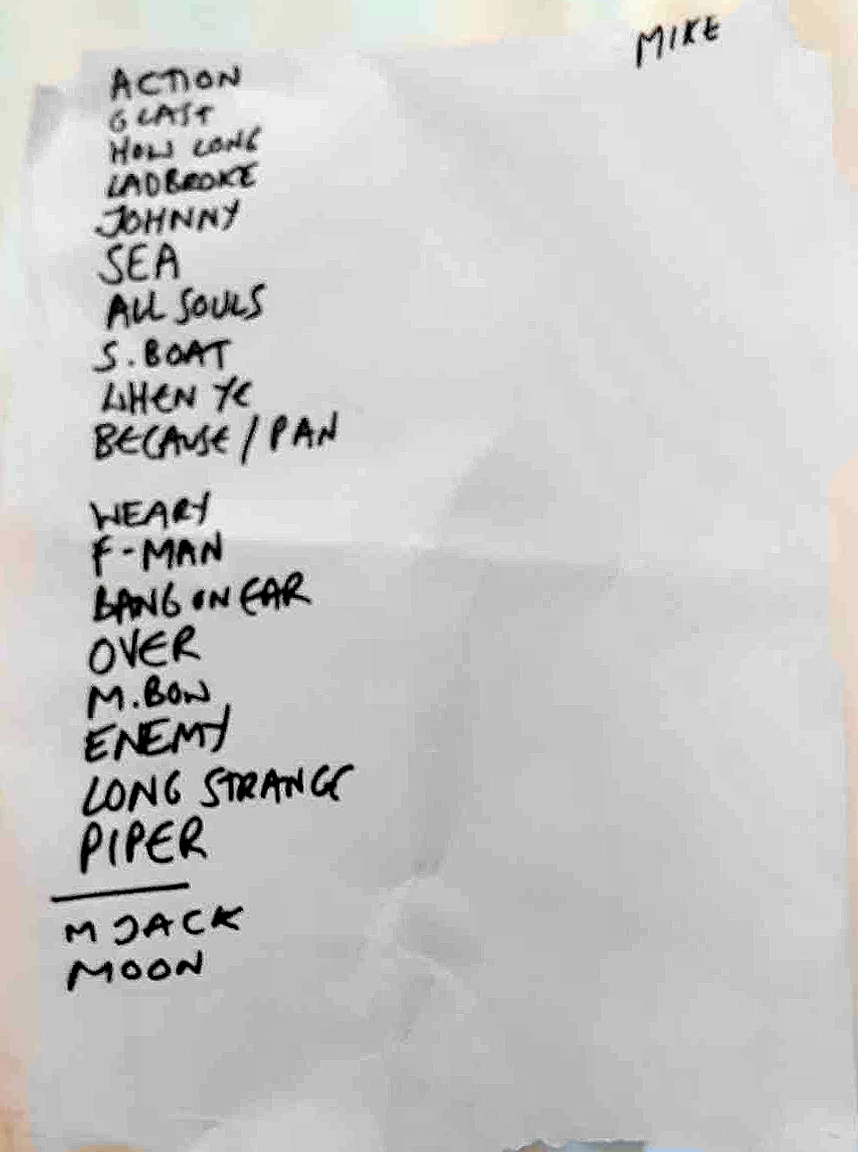 MIKE
ACTION
GLAST
HOW LONG
LADBROKE
JOHNNY
SEA
ALL SOULS
S. BOAT
WHEN YE
BECAUSE / PAN
WEARY
F-MAN
BANG ON EAR
OVER
M. BOW
ENEMY
LONG STRANGE
PIPER
M JACK
MOON